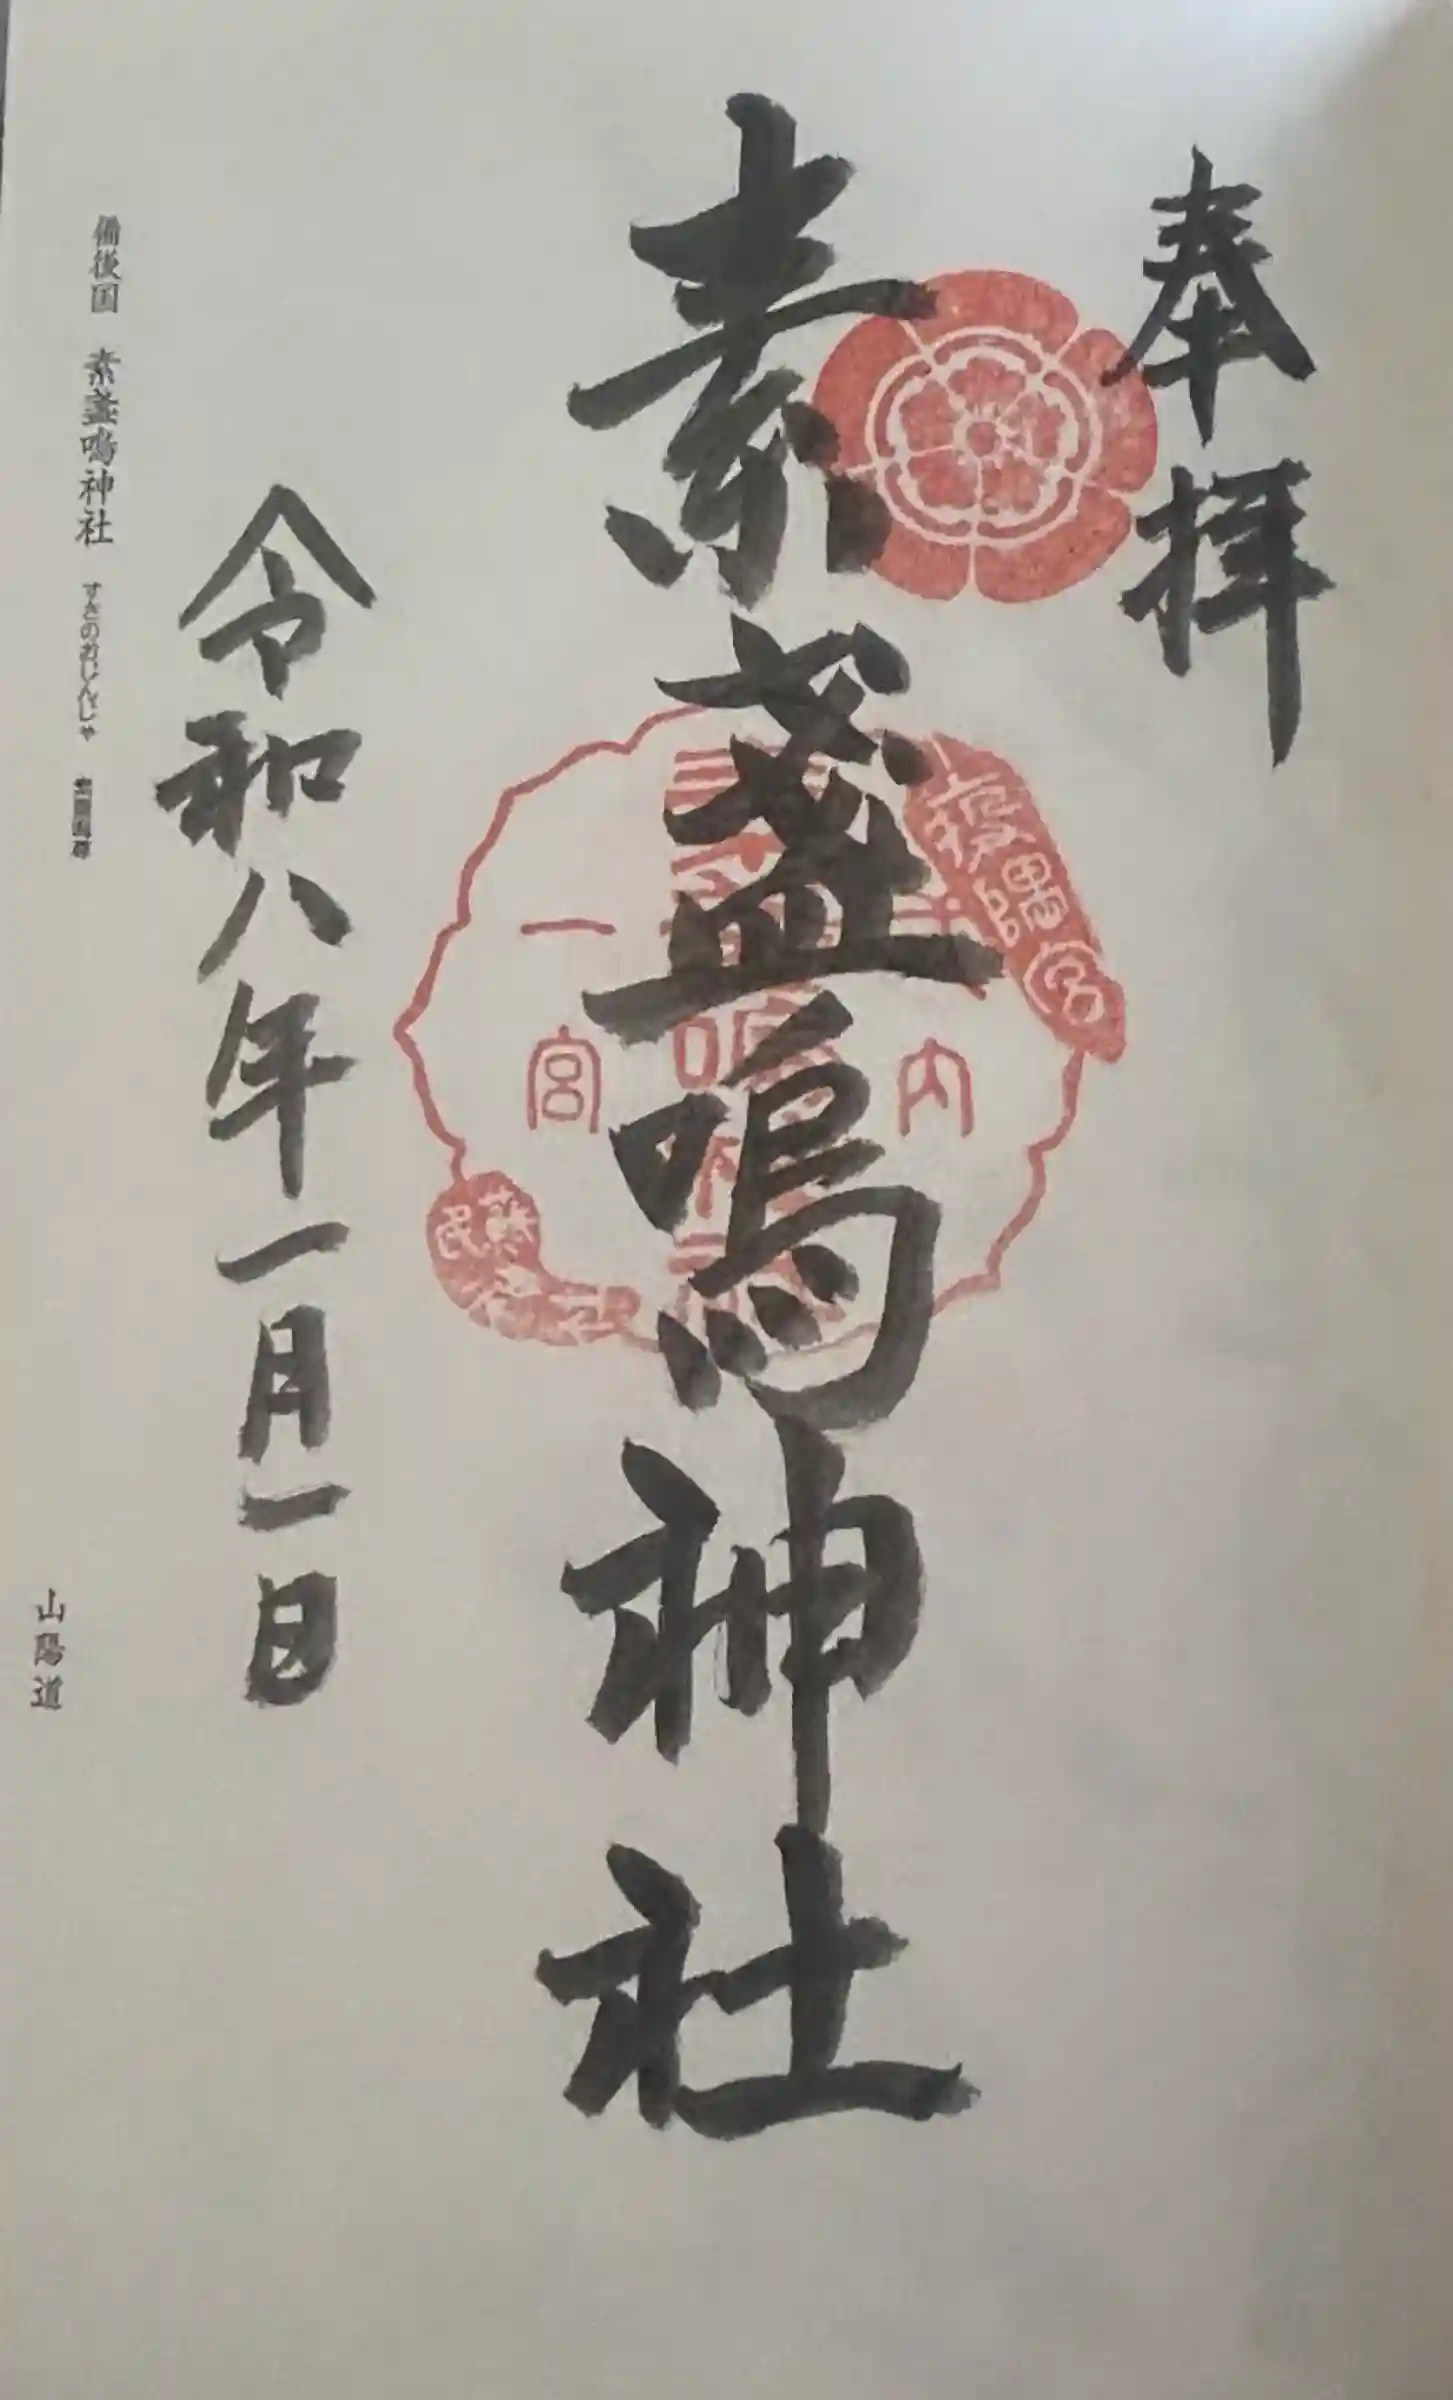 奉拝
素盞嗚神社
内
一宮
令和八年一月一日
備後国 素盞嗚神社 すさのおじんじゃ
山陽道